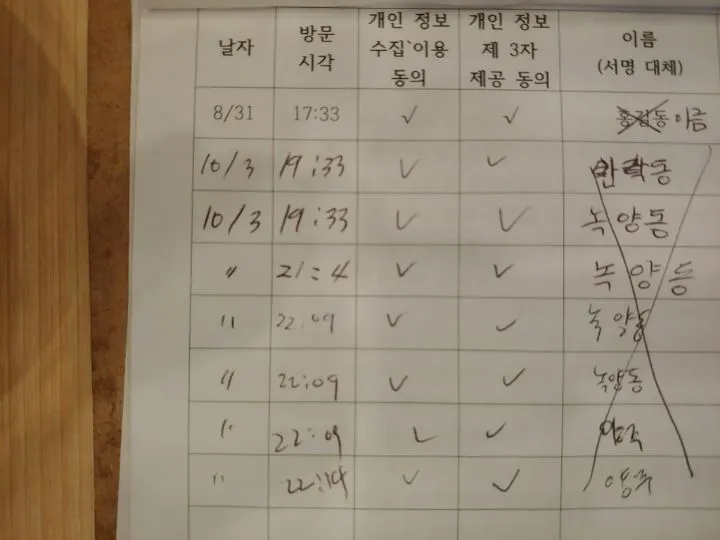 날자 방문 시각 개인 정보 수집`이용 동의 개인 정보 제 3자 제공 동의 이름 (서명 대체)
8/31 17:33 ✓ ✓ 홍길동 이름
10/3 19:33 ✓ ✓ 안락동
10/3 19:33 ✓ ✓ 녹양동
〃 21:4 ✓ ✓ 녹양동
〃 22:09 ✓ ✓ 녹양동
〃 22:09 ✓ ✓ 녹양동
〃 22:09 ✓ ✓
〃 22:14 ✓ ✓ 양주